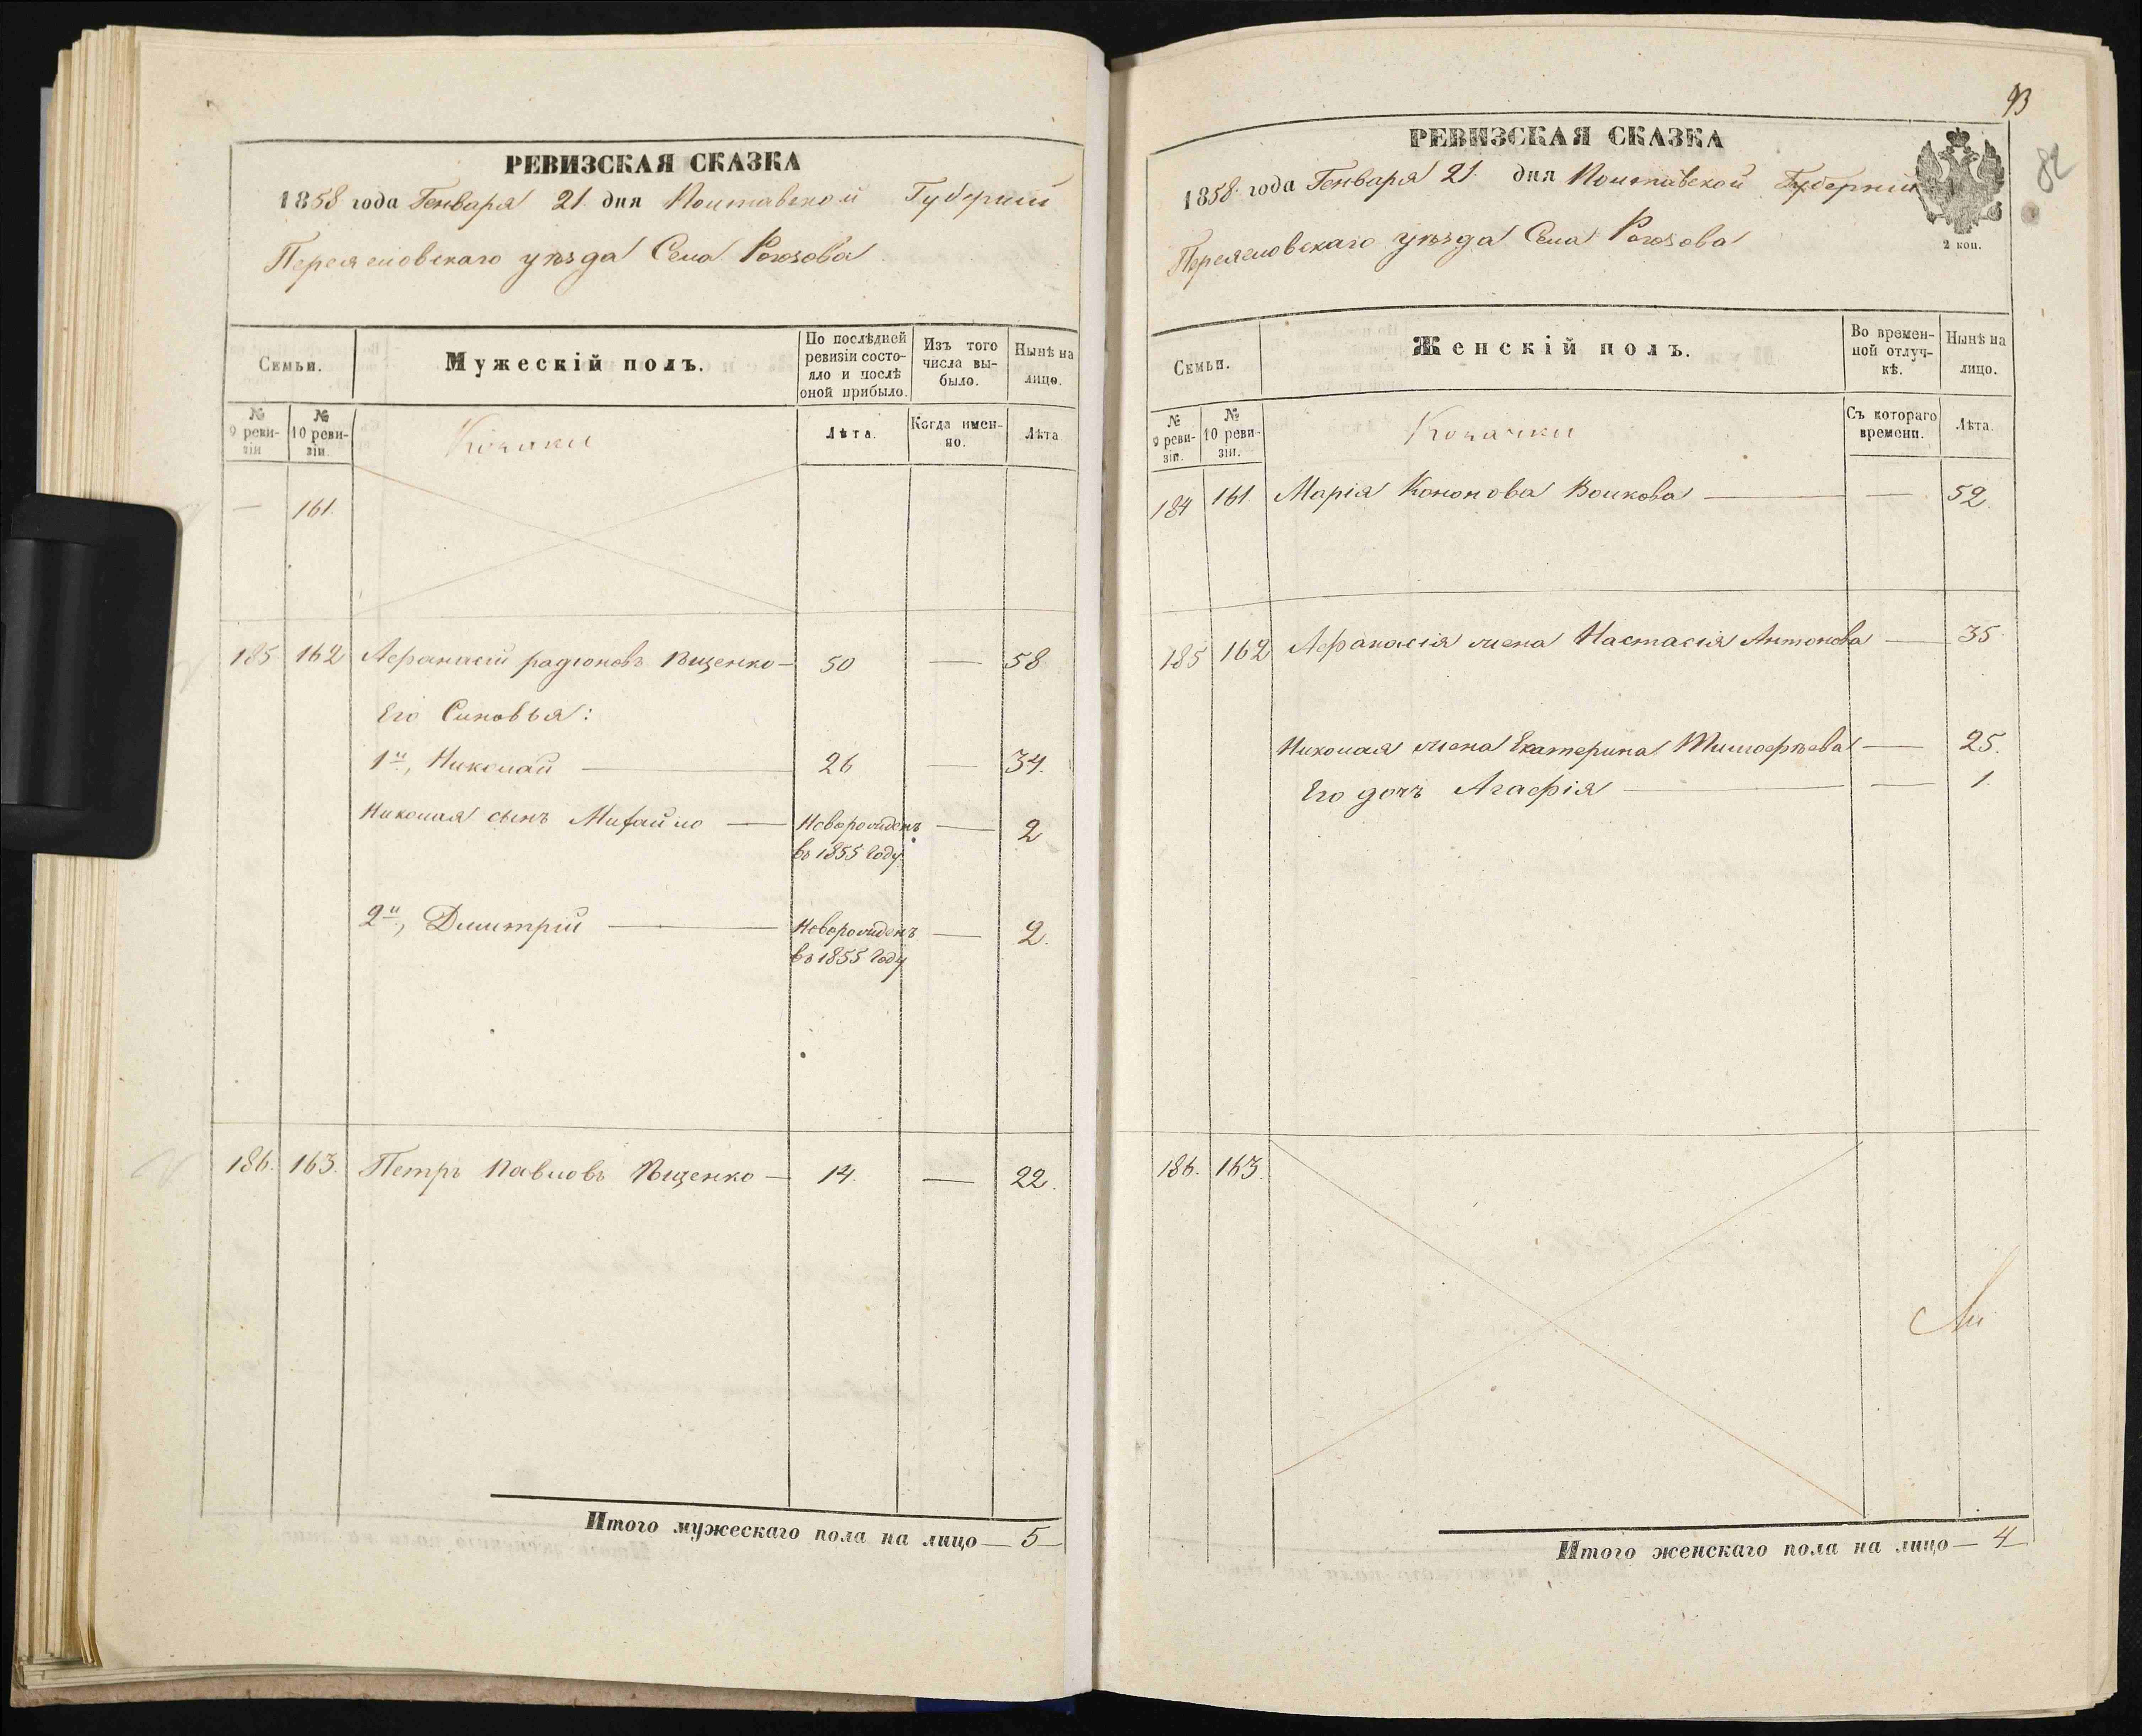 РЕВИЗСКАЯ СКАЗКА
1858 года Генваря 21 дня Полтавской Губернии
Переяславскаго уѣзда Села Рогозова
Семьи.
Мужескій полъ.
По послѣдней ревизіи состояло и послѣ оной прибыло.
Изъ того числа выбыло.
Нынѣ на лицо.
№ 9 ревизіи
№ 10 ревизіи.
Козаки
Лѣта.
Когда именно.
Лѣта
— 161.
185 162 Афанасій радіоновъ Ищенко — 50 — 58
Его Сыновья:
1й, Николай — 26 — 34.
Николая сынъ Михайло — Новорожденъ — 2
въ 1855 году
2й, Дмитрій — Новорожденъ — 2.
въ 1855 году
186. 163. Петръ Павловъ Ищенко — 14. — 22.
Итого мужескаго пола на лицо — 5
93
82
РЕВИЗСКАЯ СКАЗКА
1858 года Генваря 21 дня Полтавской Губерніи
Переяславскаго уѣзда Села Рогозова
2 коп.
Семьи.
Женскій полъ.
Во временной отлучкѣ.
Нынѣ на лицо.
№ 9 ревизіи.
№ 10 ревизіи.
Козачки
Съ котораго времени.
Лѣта.
184 161. Марія Кононова Волкова — — 52.
185 162 Афанасія жена Настасія Антонова — 35
Николая жена Екатерина Тимофѣева — 25.
Его дочь Агафія — — 1.
186. 163.
Итого женскаго пола на лицо — 4